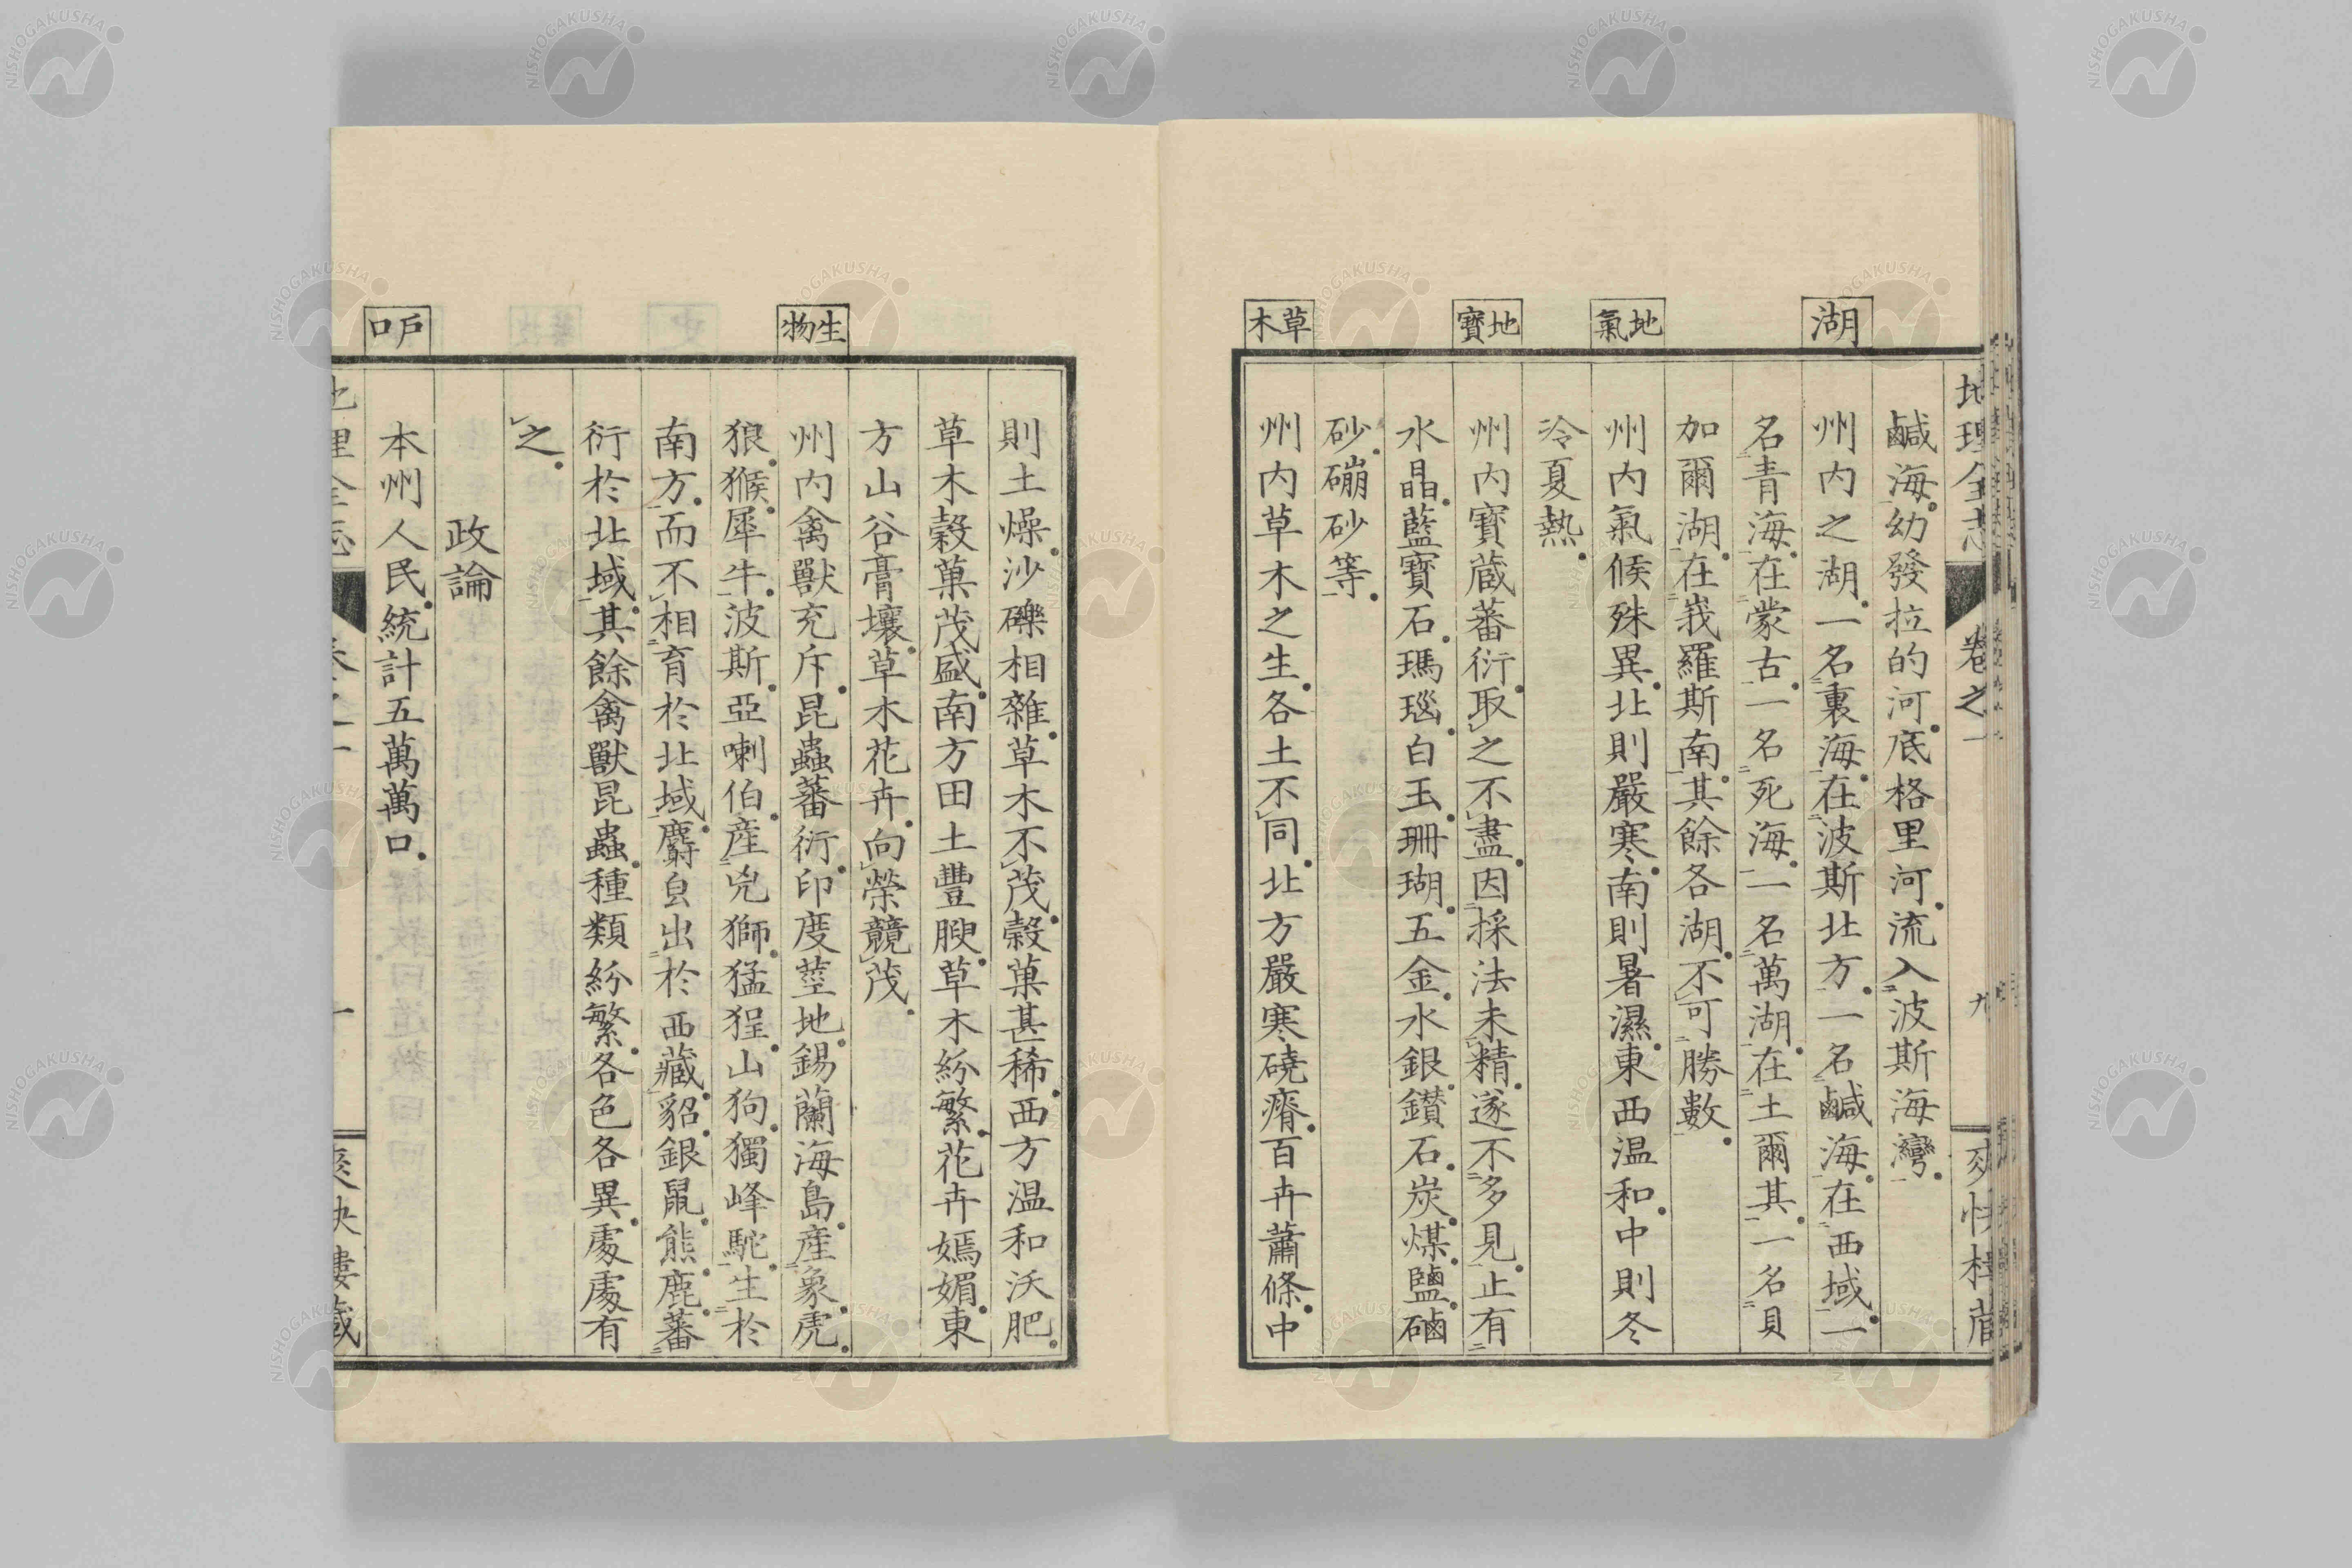 地理全志
卷之一
九
湖
鹹海.幼發拉的河.底格里河.流入波斯海灣.
州内之湖.一名裏海.在波斯北方.一名鹹海.在西域.一
名青海.在蒙古.一名死海.一名萬湖.在土爾其.一名貝
加爾湖.在峩羅斯南.其餘各湖.不可勝數.
地氣
州内氣候殊異.北則嚴寒.南則暑濕.東西温和.中則冬
冷夏熱.
地寶
州内寶蔵蕃衍.取之不盡.因採法未精.遂不多見.止有
水晶.藍寶石.瑪瑙.白玉.珊瑚.五金.水銀.鑚石.炭.煤.鹽.硇
砂.磞砂等.
草木
州内草木之生.各土不同.北方嚴寒磽瘠.百卉蕭條.中
則土燥.沙礫相雜.草木不茂.榖菓甚稀.西方温和沃肥.
草木榖菓茂盛.南方田土豐腴.草木紛繁.花卉嫣媚.東
方山谷膏壤.草木花卉.向榮競茂.
生物
州内禽獸充斥.昆蟲蕃衍.印度莖地.錫蘭海島.產象.虎.
狼.猴.犀牛.波斯.亞喇伯.產兕.獅.猛猩.山狗.獨峰駝.生於
南方.而不相育於北域.麝.㒵出於西藏.貂.銀鼠.熊.鹿.蕃
衍於北域.其餘禽獸昆蟲.種類紛繁.各色各異.處處有
之.
政論
戶口
本州人民.統計五萬萬口.
地理全志
爽快樓藏
NISHOGAKUSHA